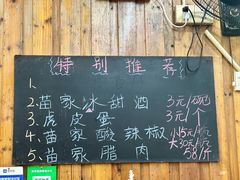 特别推荐
1.
2.苗家冰甜酒 3元/
3.虎皮蛋 3元/个
4.苗家酸辣椒 小15元
大30元
5.苗家腊肉 58/斤